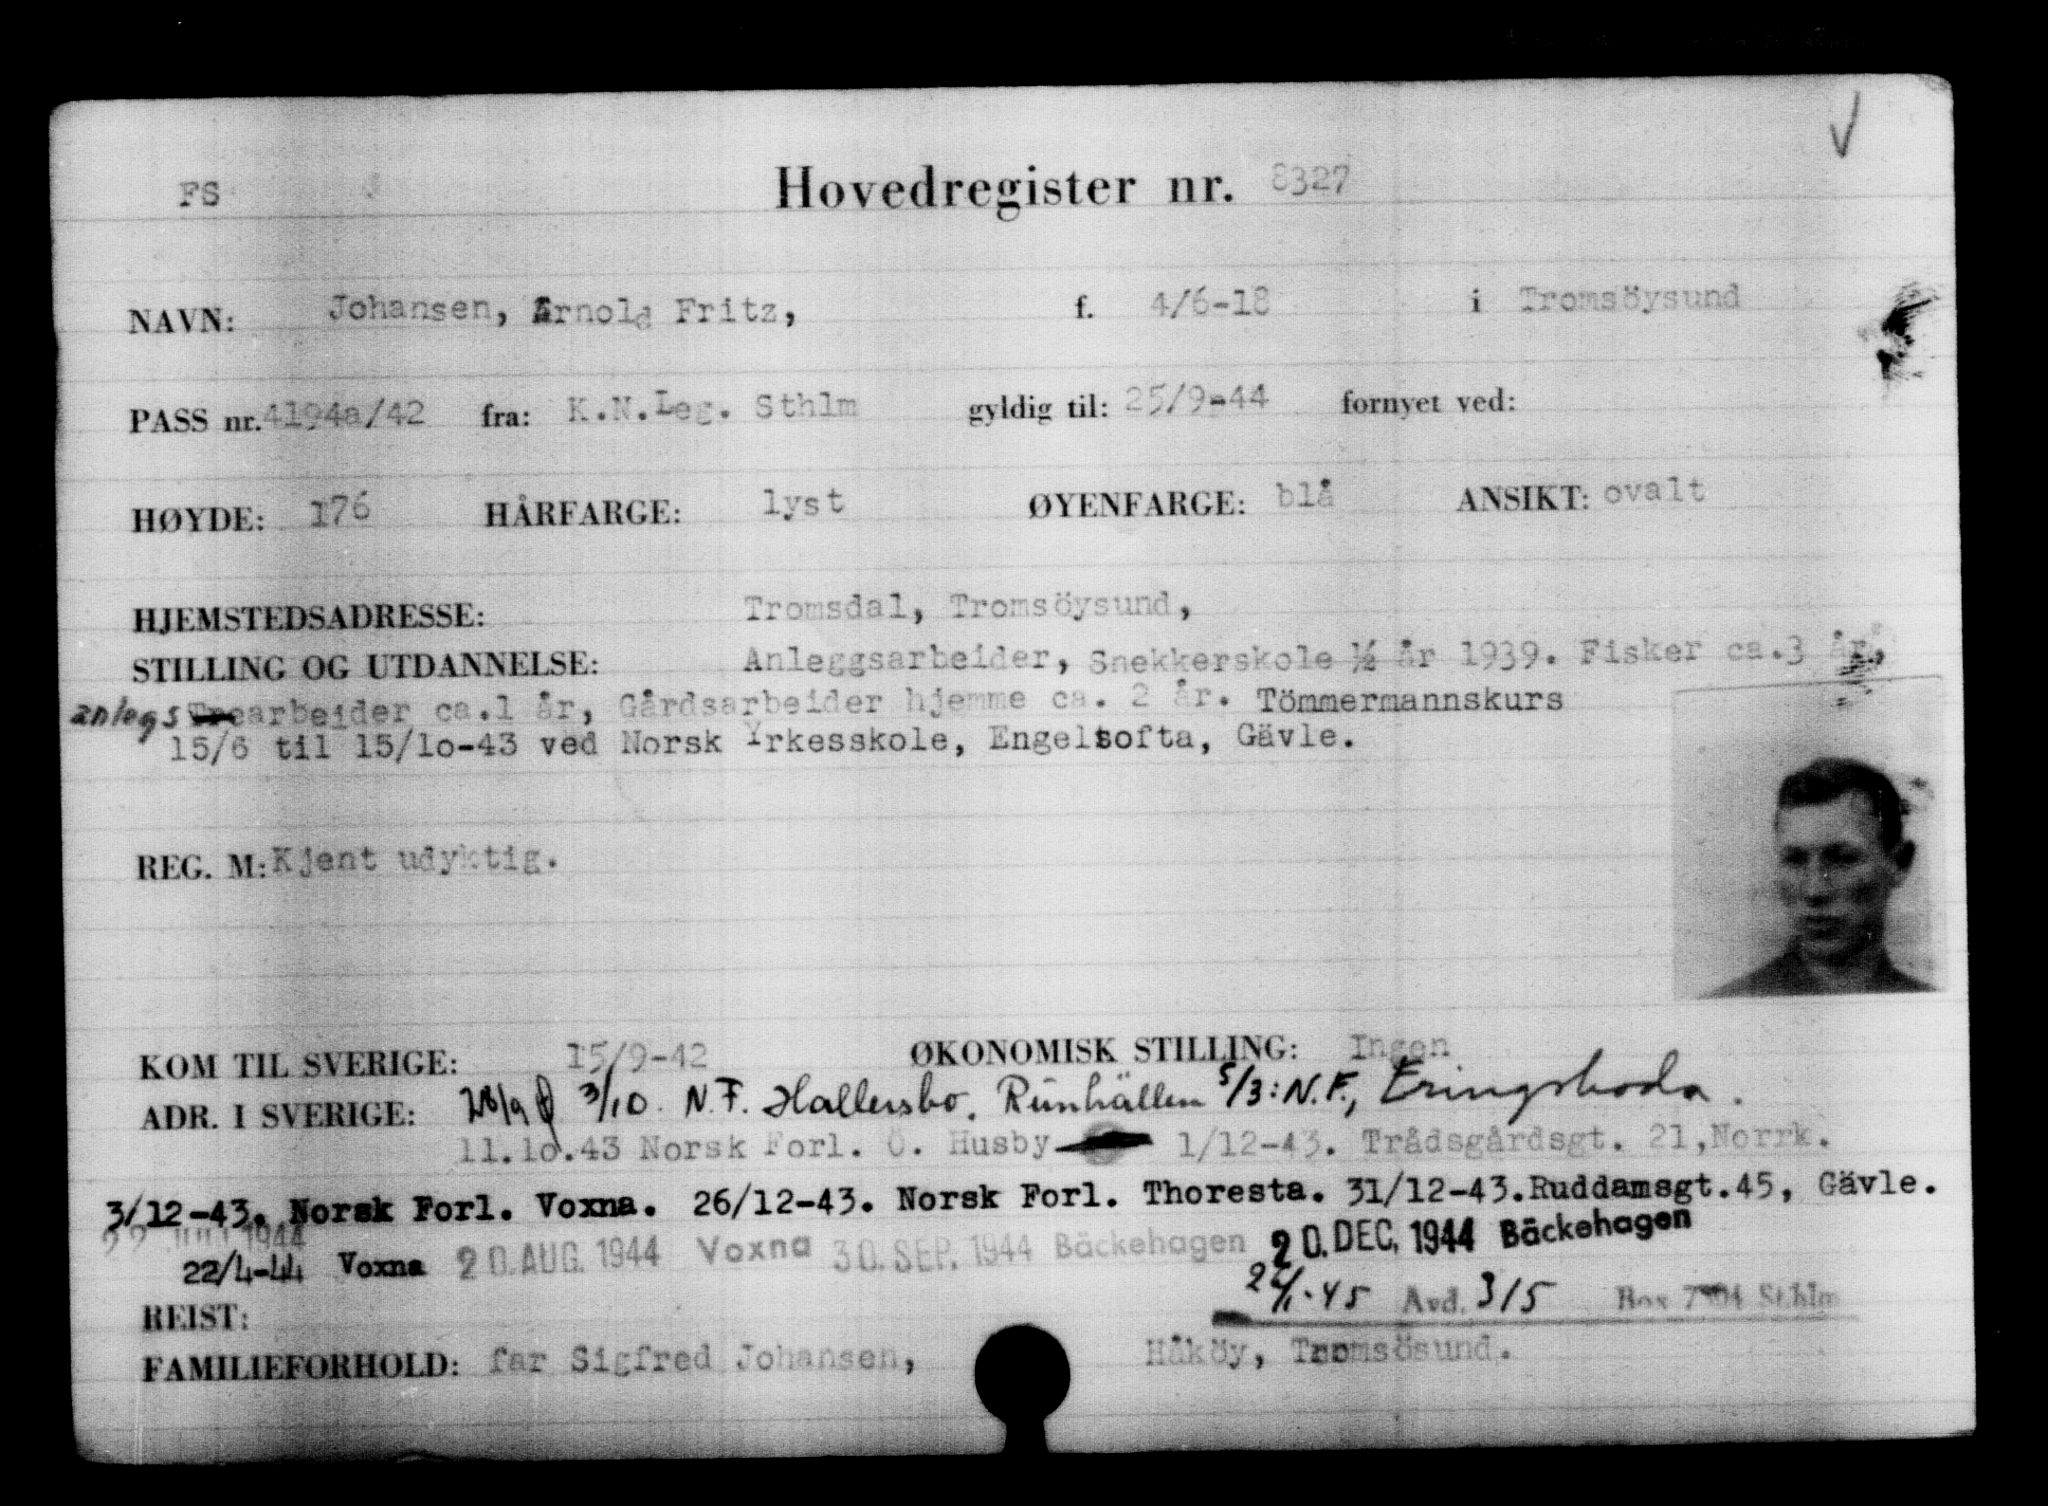 FS Hovedregister nr. 8327
NAVN: Johansen, Arnold Fritz, f. 4/6-18 i Tromsöysund
PASS nr. 4194a/42 fra: K.N.Leg. Sthlm gyldig til: 25/9-44 fornyet ved:
HØYDE: 176 HÅRFARGE: lyst ØYENFARGE: blå ANSIKT: ovalt
HJEMSTEDSADRESSE: Tromsdal, Tromsöysund,
STILLING OG UTDANNELSE: Anleggsarbeider, Snekkerskole ½ år 1939. Fisker ca.3 år,
anlegs arbeider ca.1 år, Gårdsarbeider hjemme ca. 2 år. Tömmermannskurs
15/6 til 15/1o-43 ved Norsk Yrkesskole, Engeltofta, Gävle.
REG. M: Kjent udyktig.
KOM TIL SVERIGE: 15/9-42 ØKONOMISK STILLING: Ingen
ADR. I SVERIGE: 3/10. N.F. Hallersbo. Runhällen 5/3: N.F., Eringsboda.
11.1o.43 Norsk Forl. Ö. Husby 1/12-43. Trådsgårdsgt. 21, Norrk.
3/12-43. Norsk Forl. Voxna. 26/12-43. Norsk Forl. Thoresta. 31/12-43. Ruddamsgt.45, Gävle.
22 1944
22/4-44 Voxna 20. AUG. 1944 Voxna 30. SEP. 1944 Bäckehagen 20. DEC. 1944 Bäckehagen
REIST: Avd. 315 Box Sthlm
FAMILIEFORHOLD: far Sigfred Johansen, Håköy, Tromsösund.